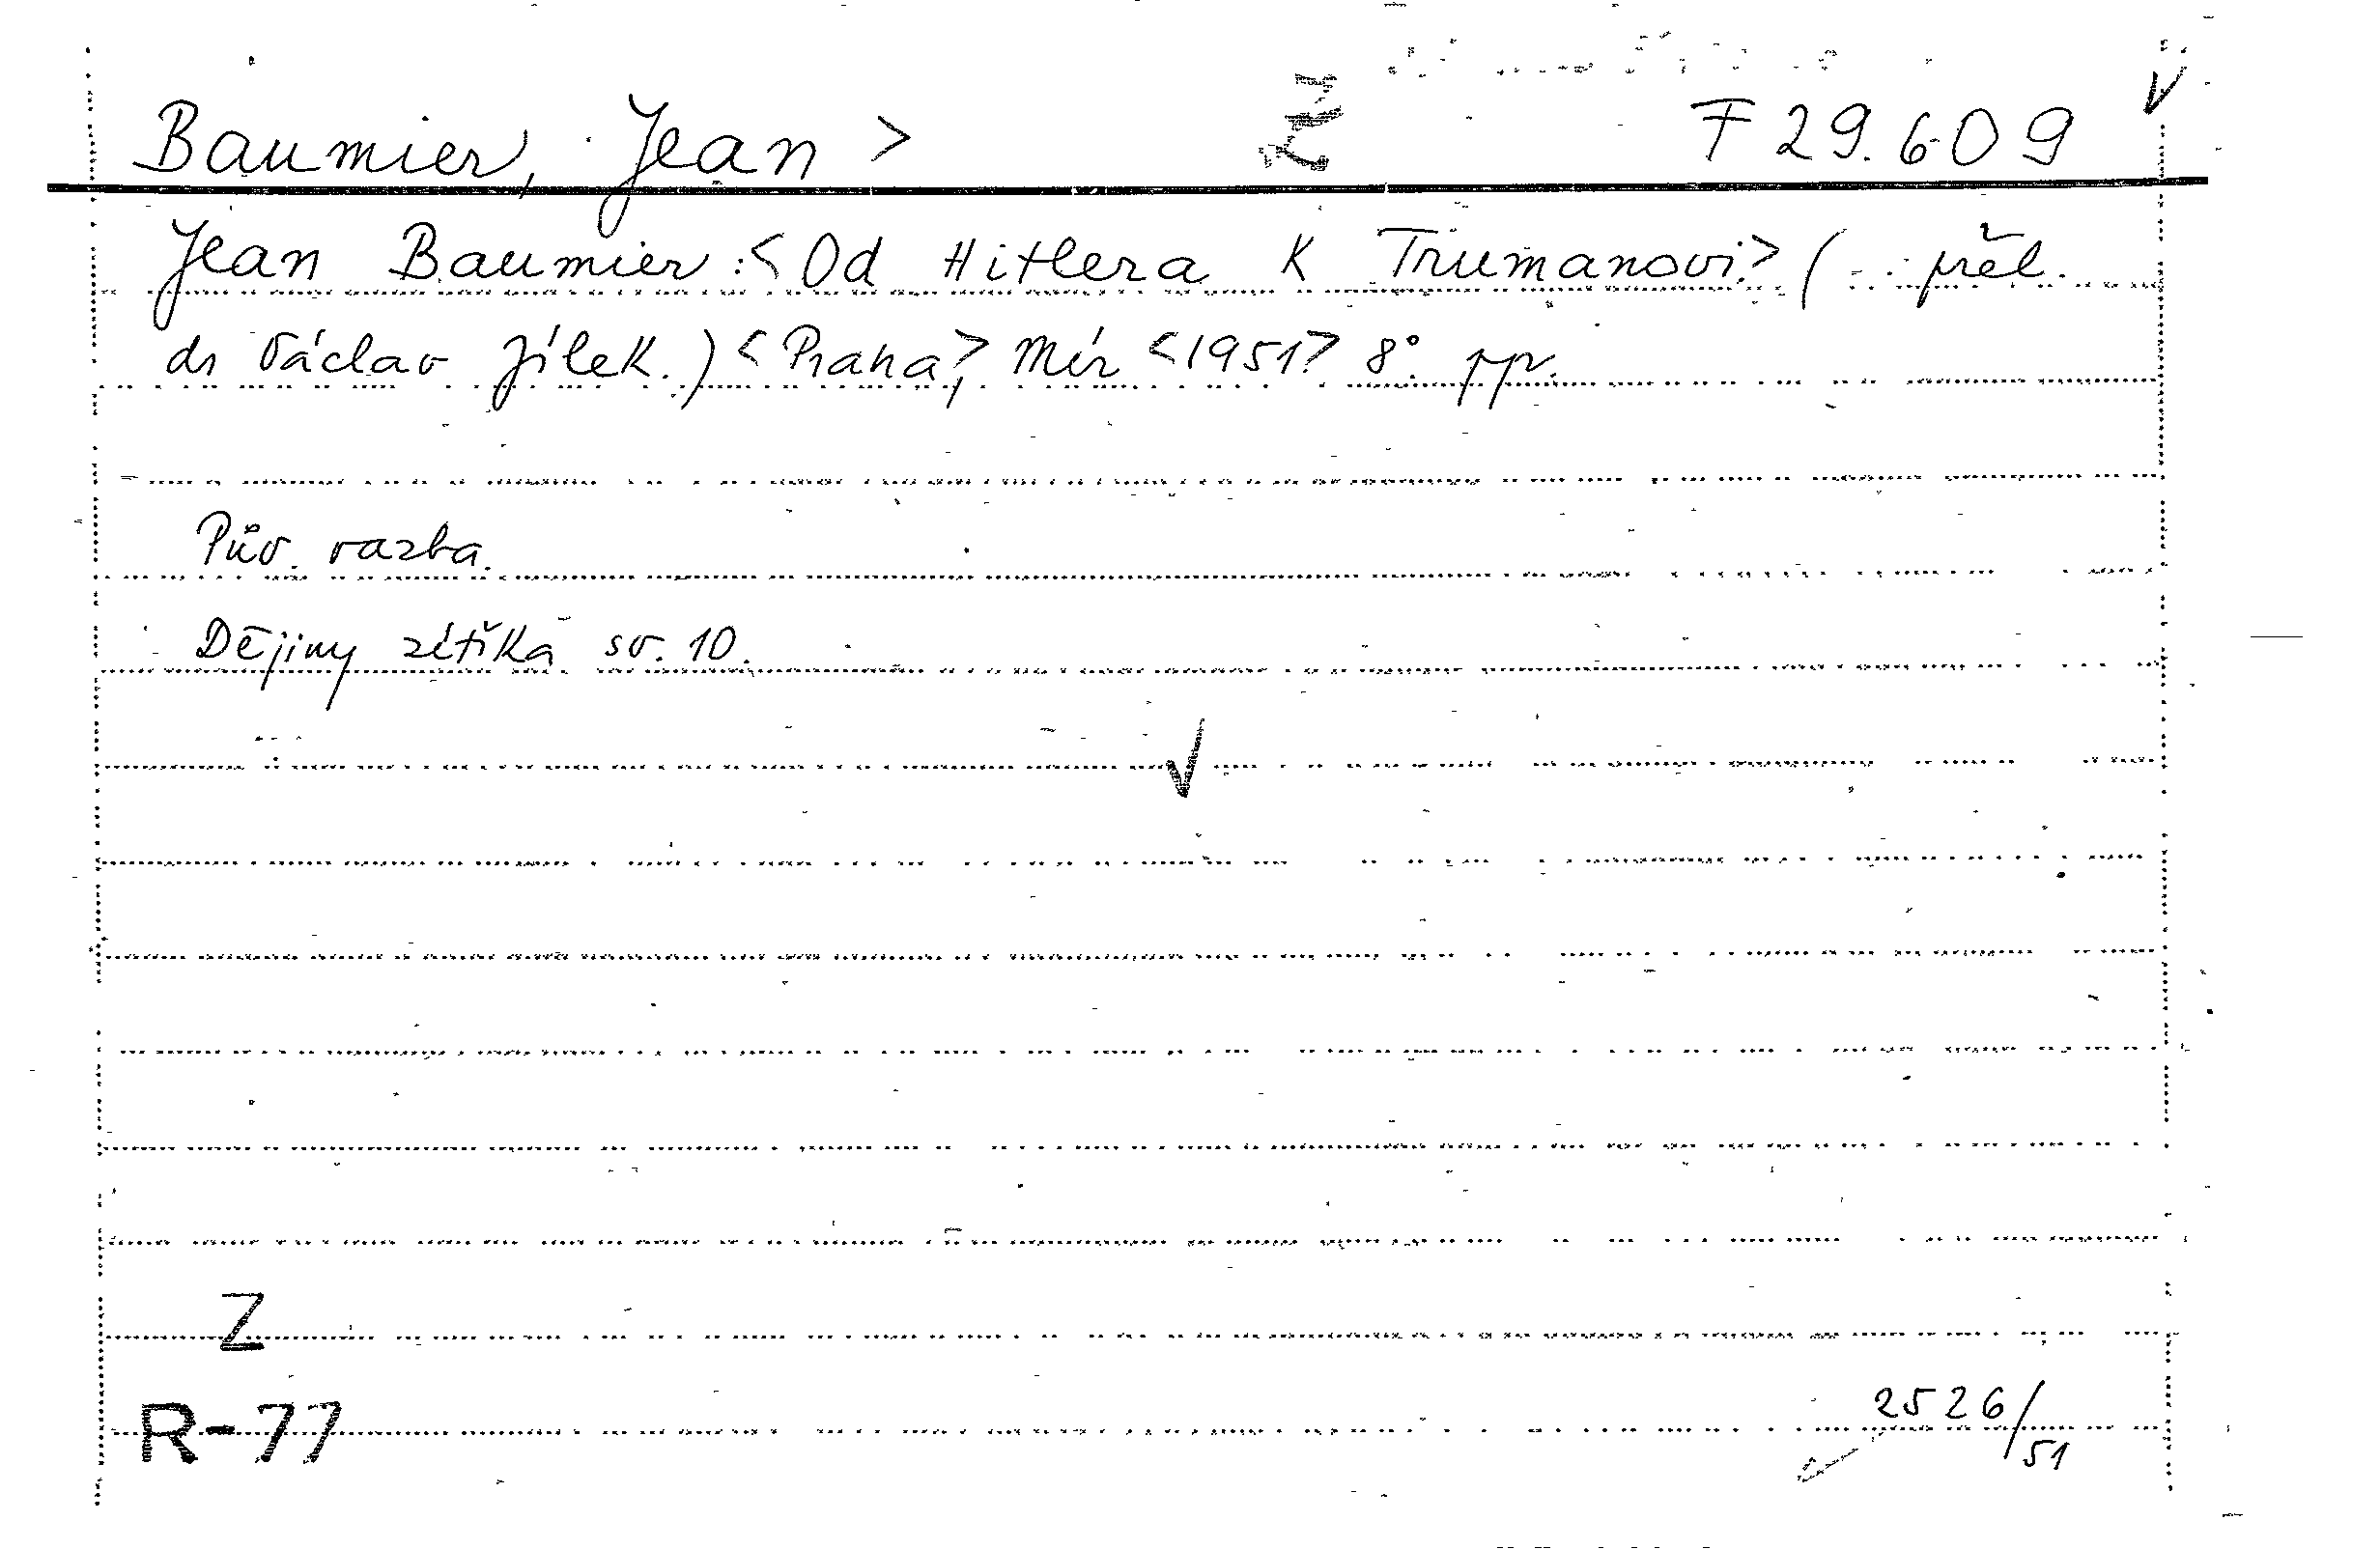 Baumier, Jean > Z F 29.609
Jean Baumier: <Od Hitlera k Trumanovi> (.. přel.
dr Václav Jílek.) <Praha>, Mír <1951> 8° pp.
Pův. vazba.
Dějiny zítřka sv. 10.
Z
R-77
2526/51